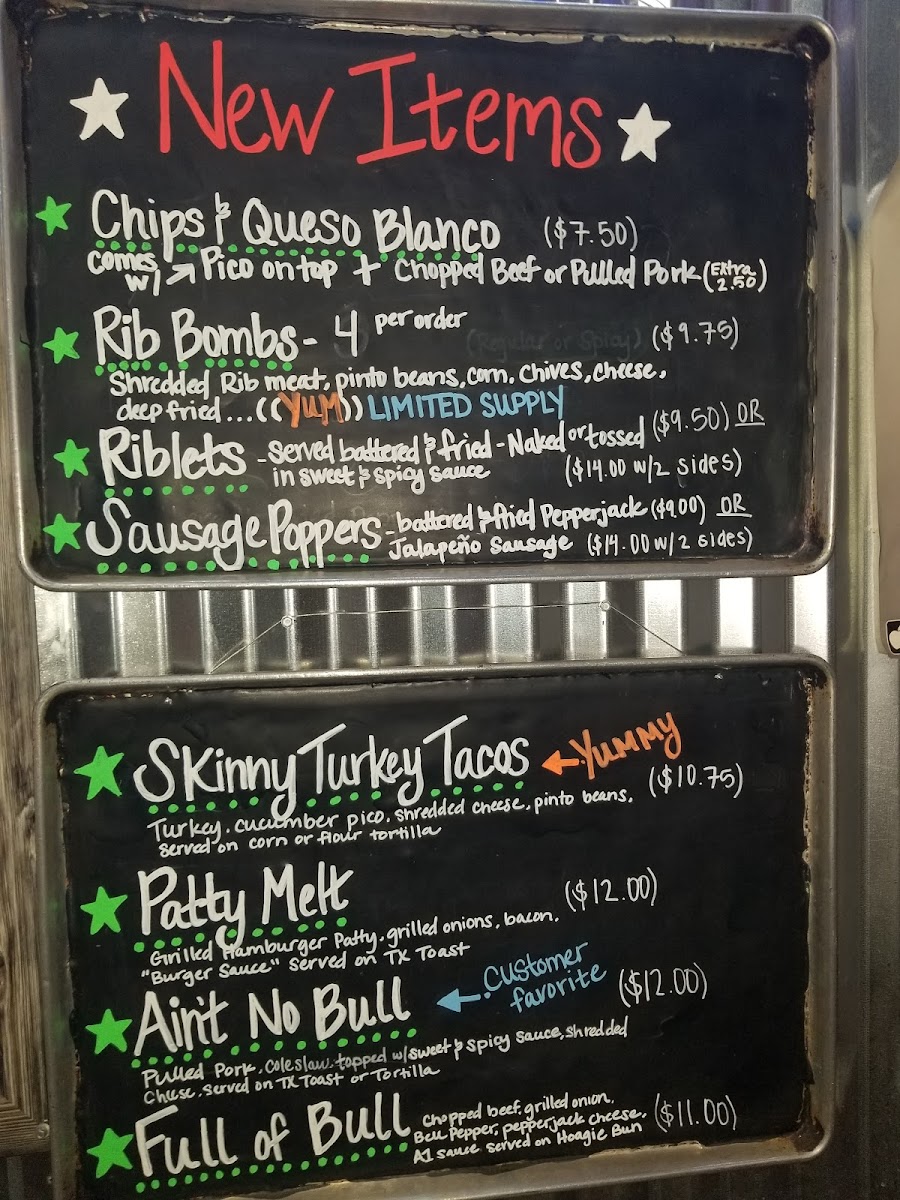 New Items
Chips & Queso Blanco ($7.50)
comes w/ → Pico on top + Chopped Beef or Pulled Pork (Extra 2.50)
Rib Bombs - 4 per order (Regular or Spicy) ($9.75)
Shredded Rib meat, pinto beans, corn, chives, cheese,
deep fried...((YUM)) LIMITED SUPPLY
Riblets - Served battered & fried - Naked or tossed ($9.50) OR
in sweet & spicy sauce ($14.00 w/2 sides)
Sausage Poppers - battered & fried Pepperjack ($9.00) OR
Jalapeño Sausage ($14.00 w/2 sides)
Skinny Turkey Tacos ← Yummy
($10.75)
Turkey, cucumber pico, shredded cheese, pinto beans,
served on corn or flour tortilla
Patty Melt ($12.00)
Grilled Hamburger Patty, grilled onions, bacon,
"Burger Sauce" served on TX Toast
Ain't No Bull ← Customer favorite ($12.00)
Pulled Pork, Coleslaw, topped w/sweet & spicy sauce, shredded
Cheese, served on TX Toast or Tortilla
Full of Bull chopped beef, grilled onion,
Bell Pepper, pepperjack cheese, ($11.00)
A1 sauce served on Hoagie Bun